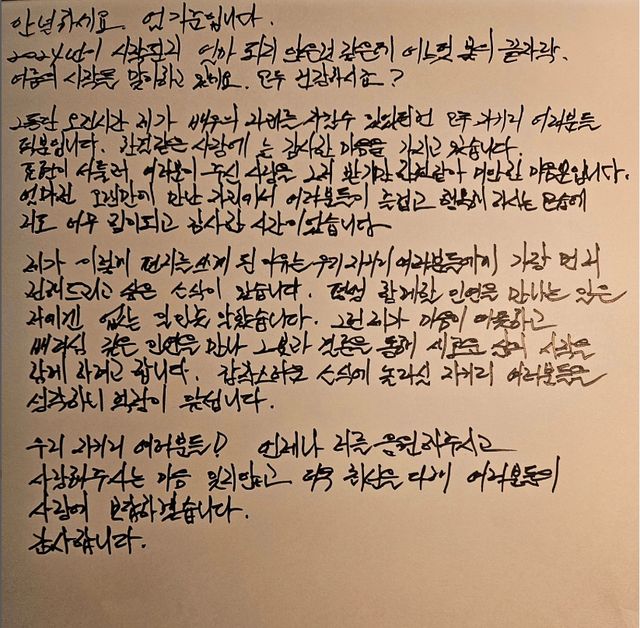 안녕하세요. 엄기준입니다.
2024년이 시작된지 얼마 되지 않은것 같은데 어느덧 봄의 끝자락.
여름의 시작을 맞이하고 있네요. 모두 건강하시죠?
그동안 오랜시간 제가 배우의 자리를 지킬수 있었던건 모두 자기리 여러분들
덕분입니다. 한결같은 사랑에 늘 감사한 마음을 가지고 있습니다.
표현이 서툴러, 여러분이 주신 사랑을 그저 받기만 한것같아 미안한 마음뿐입니다.
얼마전 오랜만에 만난 자리에서 여러분들이 즐겁고 행복해 하시는 모습에
저도 너무 힘이되고 감사한 시간이었습니다
제가 이렇게 편지를 쓰게 된 이유는 우리 자기리 여러분들에게 가장 먼저
전해드리고 싶은 소식이 있습니다. 평생 함께할 인연을 만나는 일은
저에겐 없는 일인줄 알았습니다. 그런 제가 마음이 따뜻하고
배려심 깊은 인연을 만나 그분과 결혼을 통해 새로운 삶의 시작을
함께 하려고 합니다. 갑작스러운 소식에 놀라실 자기리 여러분들을
생각하니 걱정이 앞섭니다.
우리 자기리 여러분들! 언제나 저를 응원해주시고
사랑해주시는 마음 잊지않고 더욱 최선을 다해 여러분들의
사랑에 보답하겠습니다.
감사합니다.